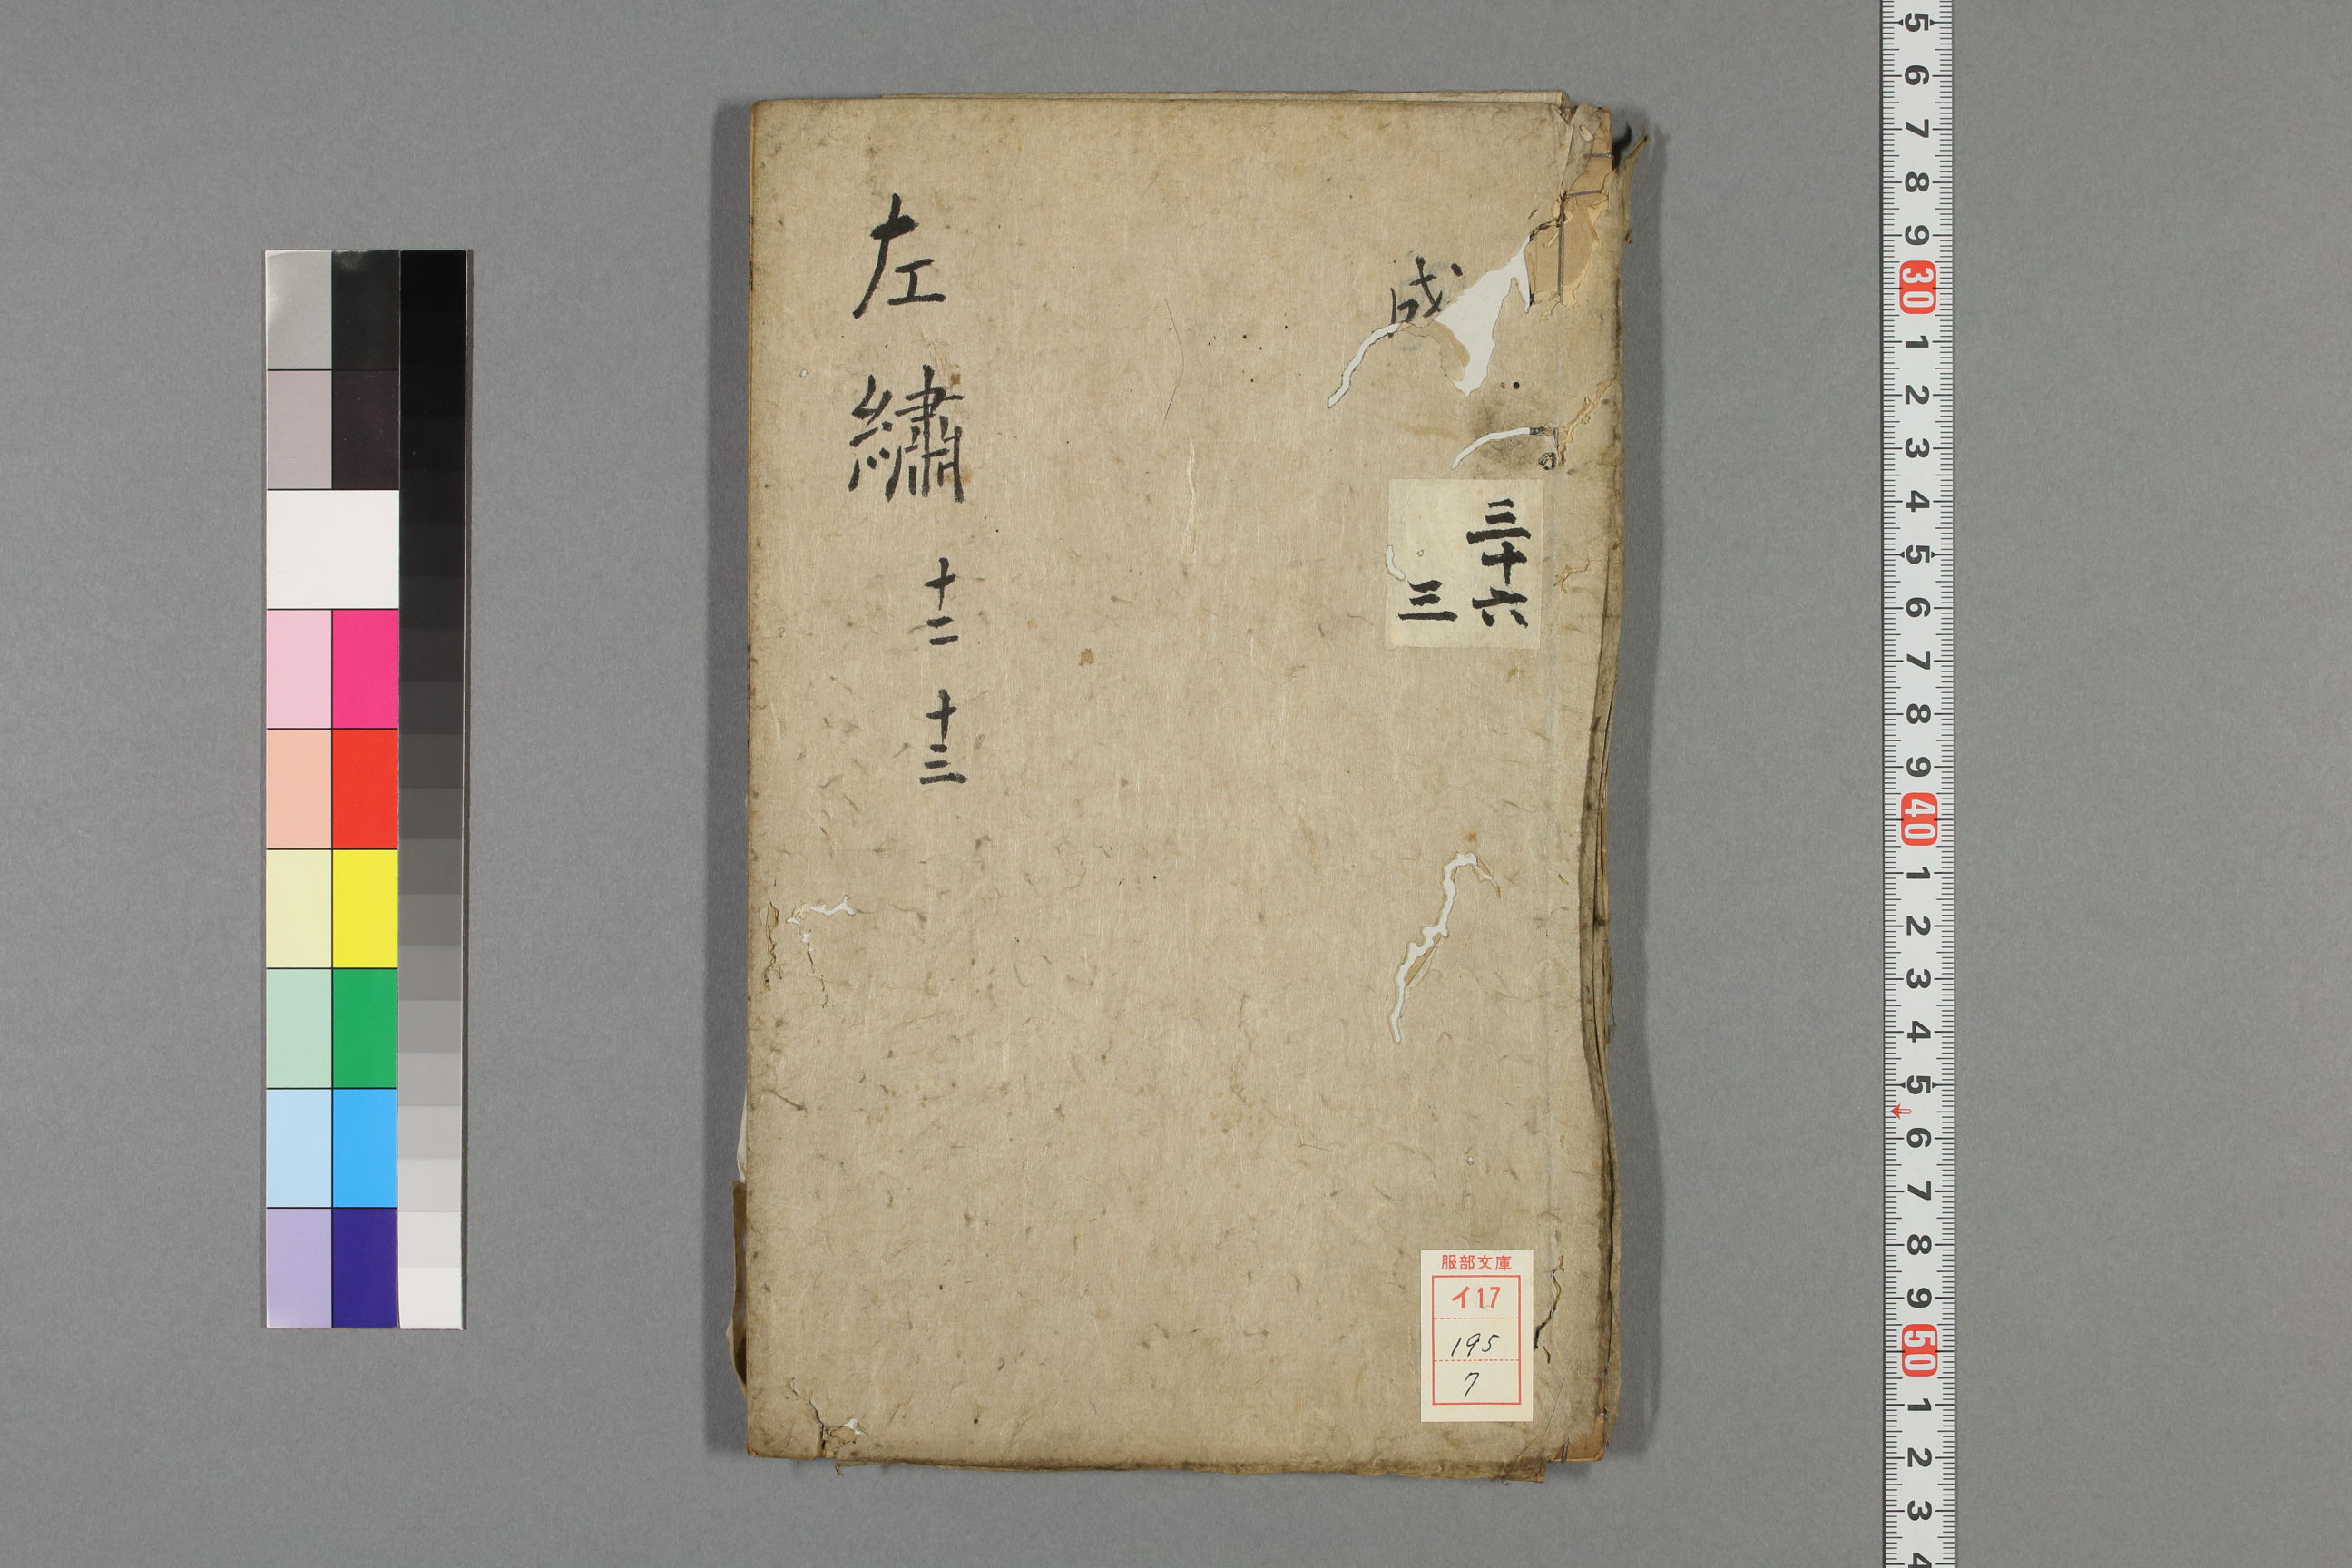 成
三十六
三
左繡 十二 十三
服部文庫
イ17
195
7
5 6 7 8 9 30 1 2 3 4 5 6 7 8 9 40 1 2 3 4 5 6 7 8 9 50 1 2 3 4